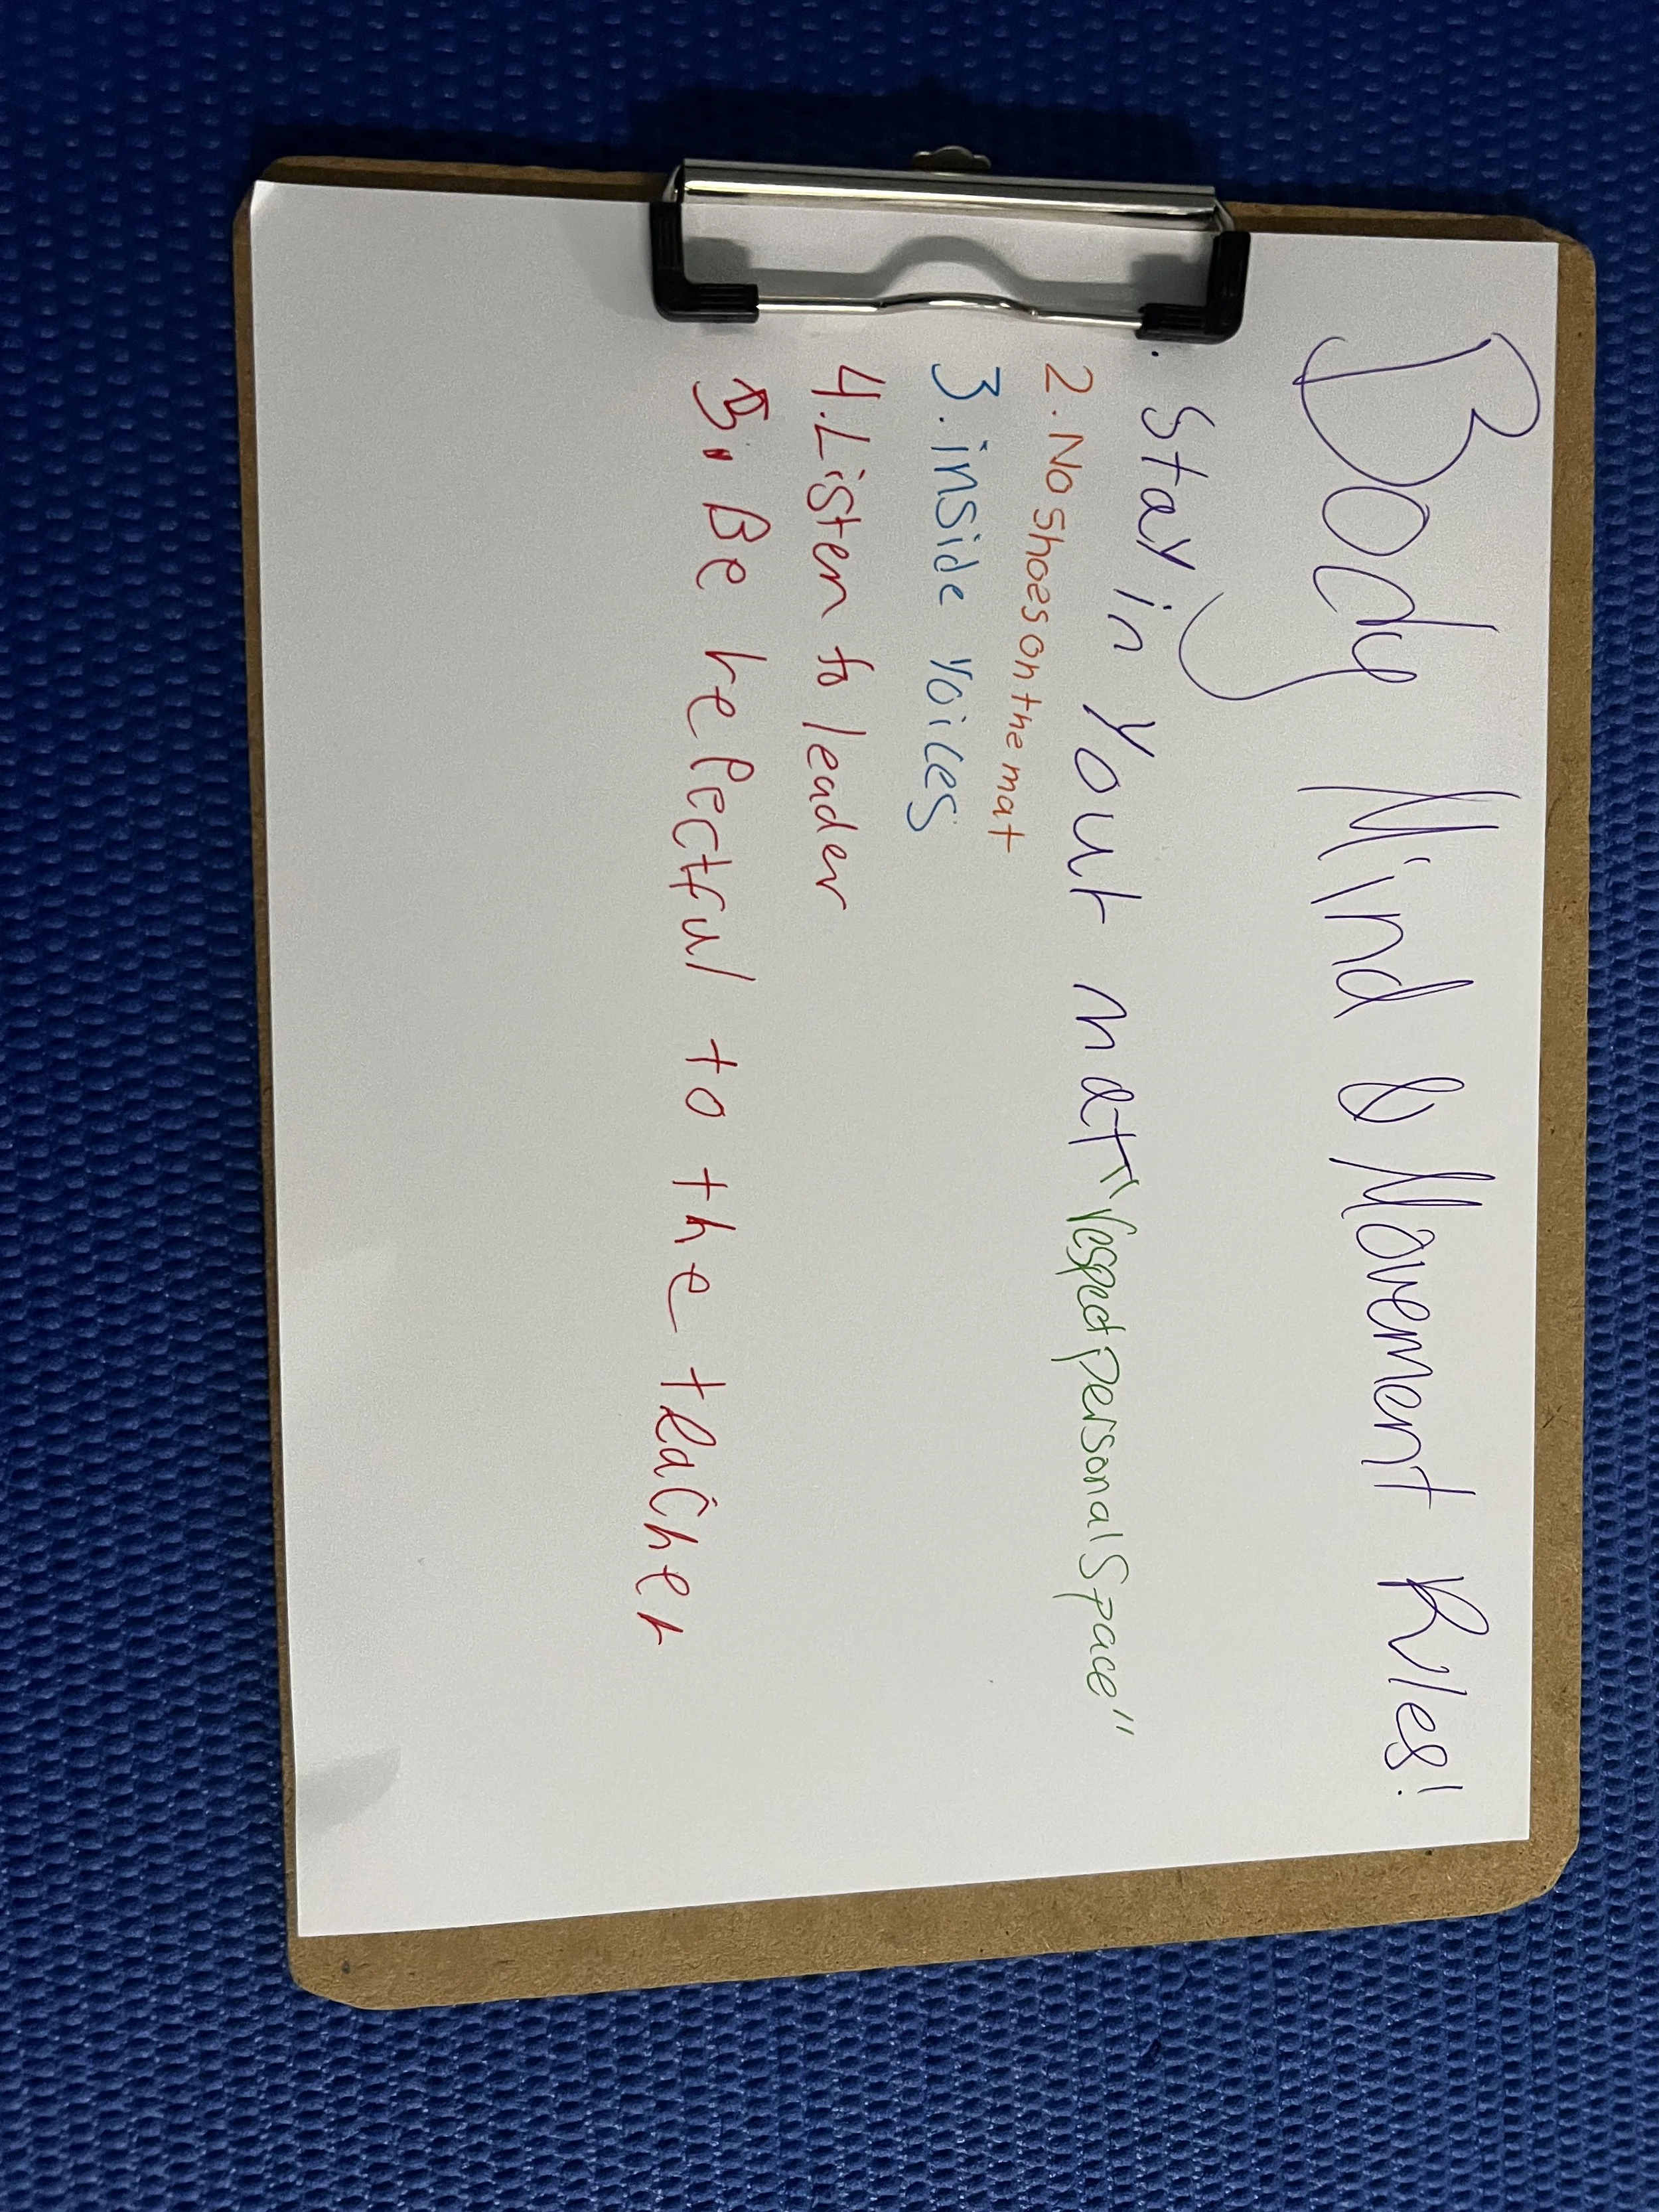 Body Mind & Movement Rules!
. Stay in Your mat "respect personal Space"
2. No shoes on the mat
3. inside voices
4. Listen to leader
5. Be hePectful to the teacher